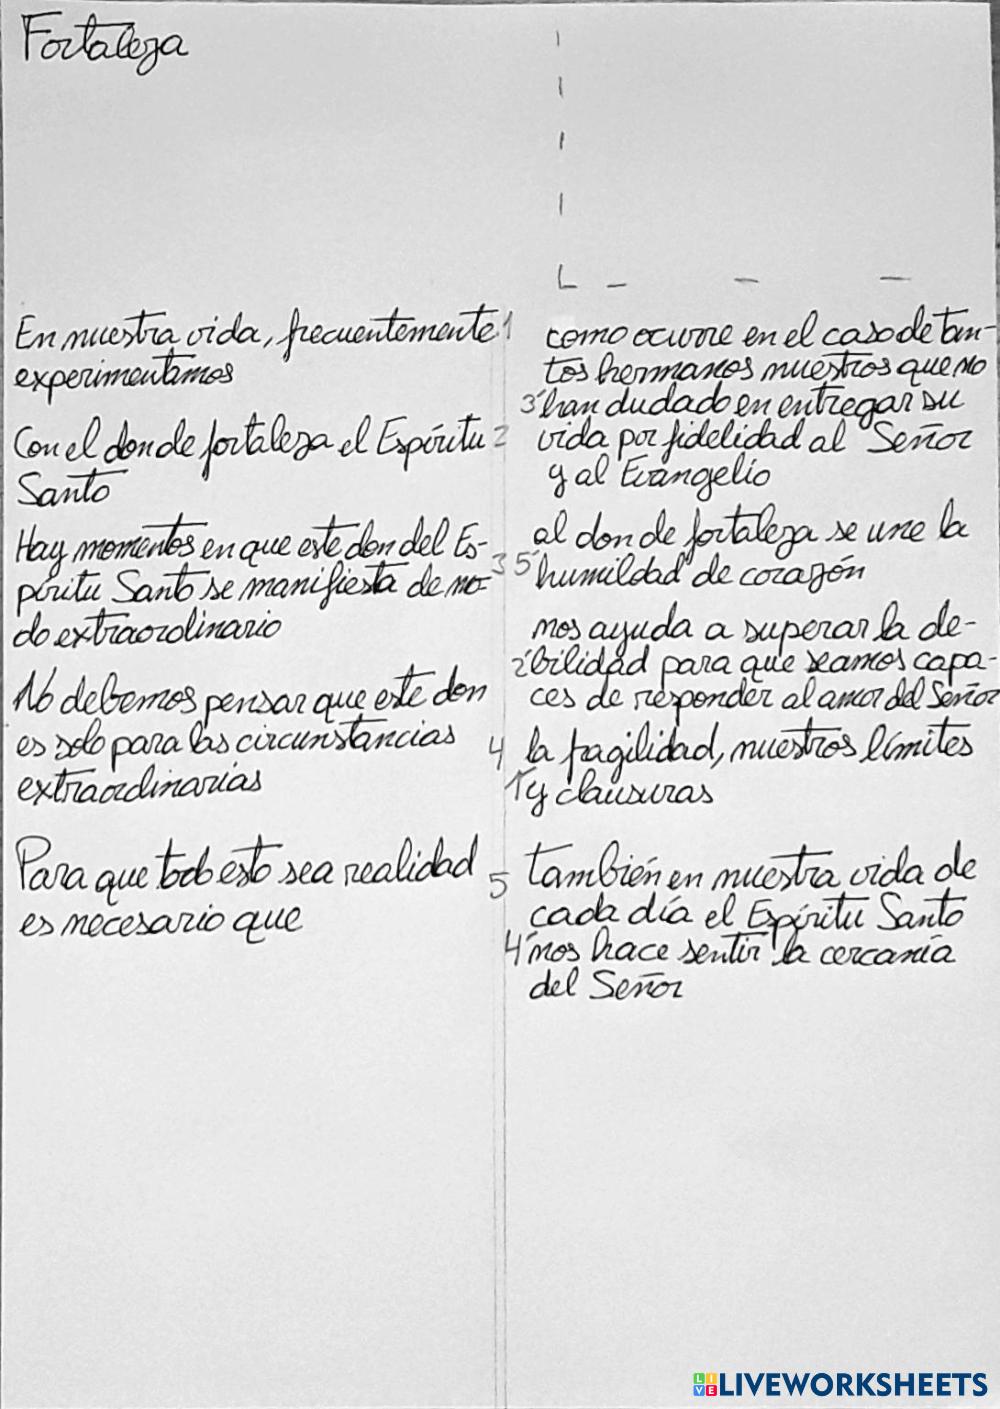 Fortaleza
En nuestra vida, frecuentemente 1
experimentamos
Con el don de fortaleza el Espíritu 2
Santo
Hay momentos en que este don del Es-
píritu Santo se manifiesta de mo- 3
do extraordinario
No debemos pensar que este don
es solo para las circunstancias 4
extraordinarias
Para que todo esto sea realidad 5
es necesario que
como ocurre en el caso de tan-
tos hermanos nuestros que no
3' han dudado en entregar su
vida por fidelidad al Señor
y al Evangelio
al don de fortaleza se une la
5' humildad de corazón
nos ayuda a superar la de-
2' bilidad para que seamos capa-
ces de responder al amor del Señor
la fragilidad, nuestros límites
1' y clausuras
también en nuestra vida de
cada día el Espíritu Santo
4' nos hace sentir la cercanía
del Señor
LIVEWORKSHEETS